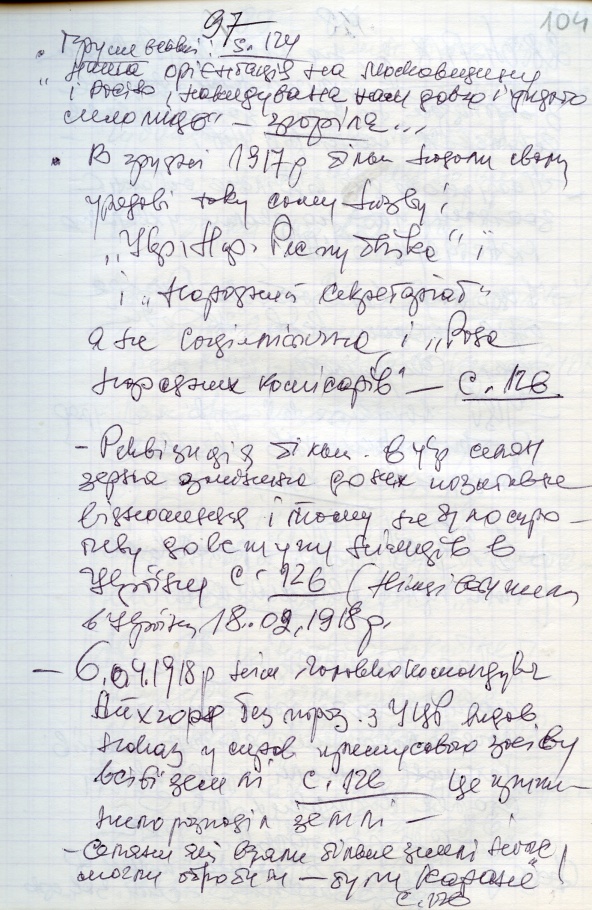 97
104
Грушевський: s. 124
"Наша орієнтація на Московщину
і Росію, накидувана нам довго і уперто
силоміць" — згоріла...
В грудні 1917р більш. надали свому
урядові таку саму назву:
"Укр. Нар. Республіка" і
і "Народний Секретаріат"
а не соціялістична і "Рада
народних комісарів" — с. 126
- Реквізиція більш. в укр селян
зерна змінила до них позитивне
відношення і тому не було спро-
тиву до вступу німців в
Україну с. 126 (німці
в Україну 18.02.1918р.
— 6.04.1918р нім. головнокоманduвач
Айхгорн без пороз. з УЦР видав
наказ у справі примусового засіву
всієї землі с. 126 Це припи-
нило розподіл землі —
- Селяни які взяли більше землі ніж
могли обробити — були карані!
с. 126